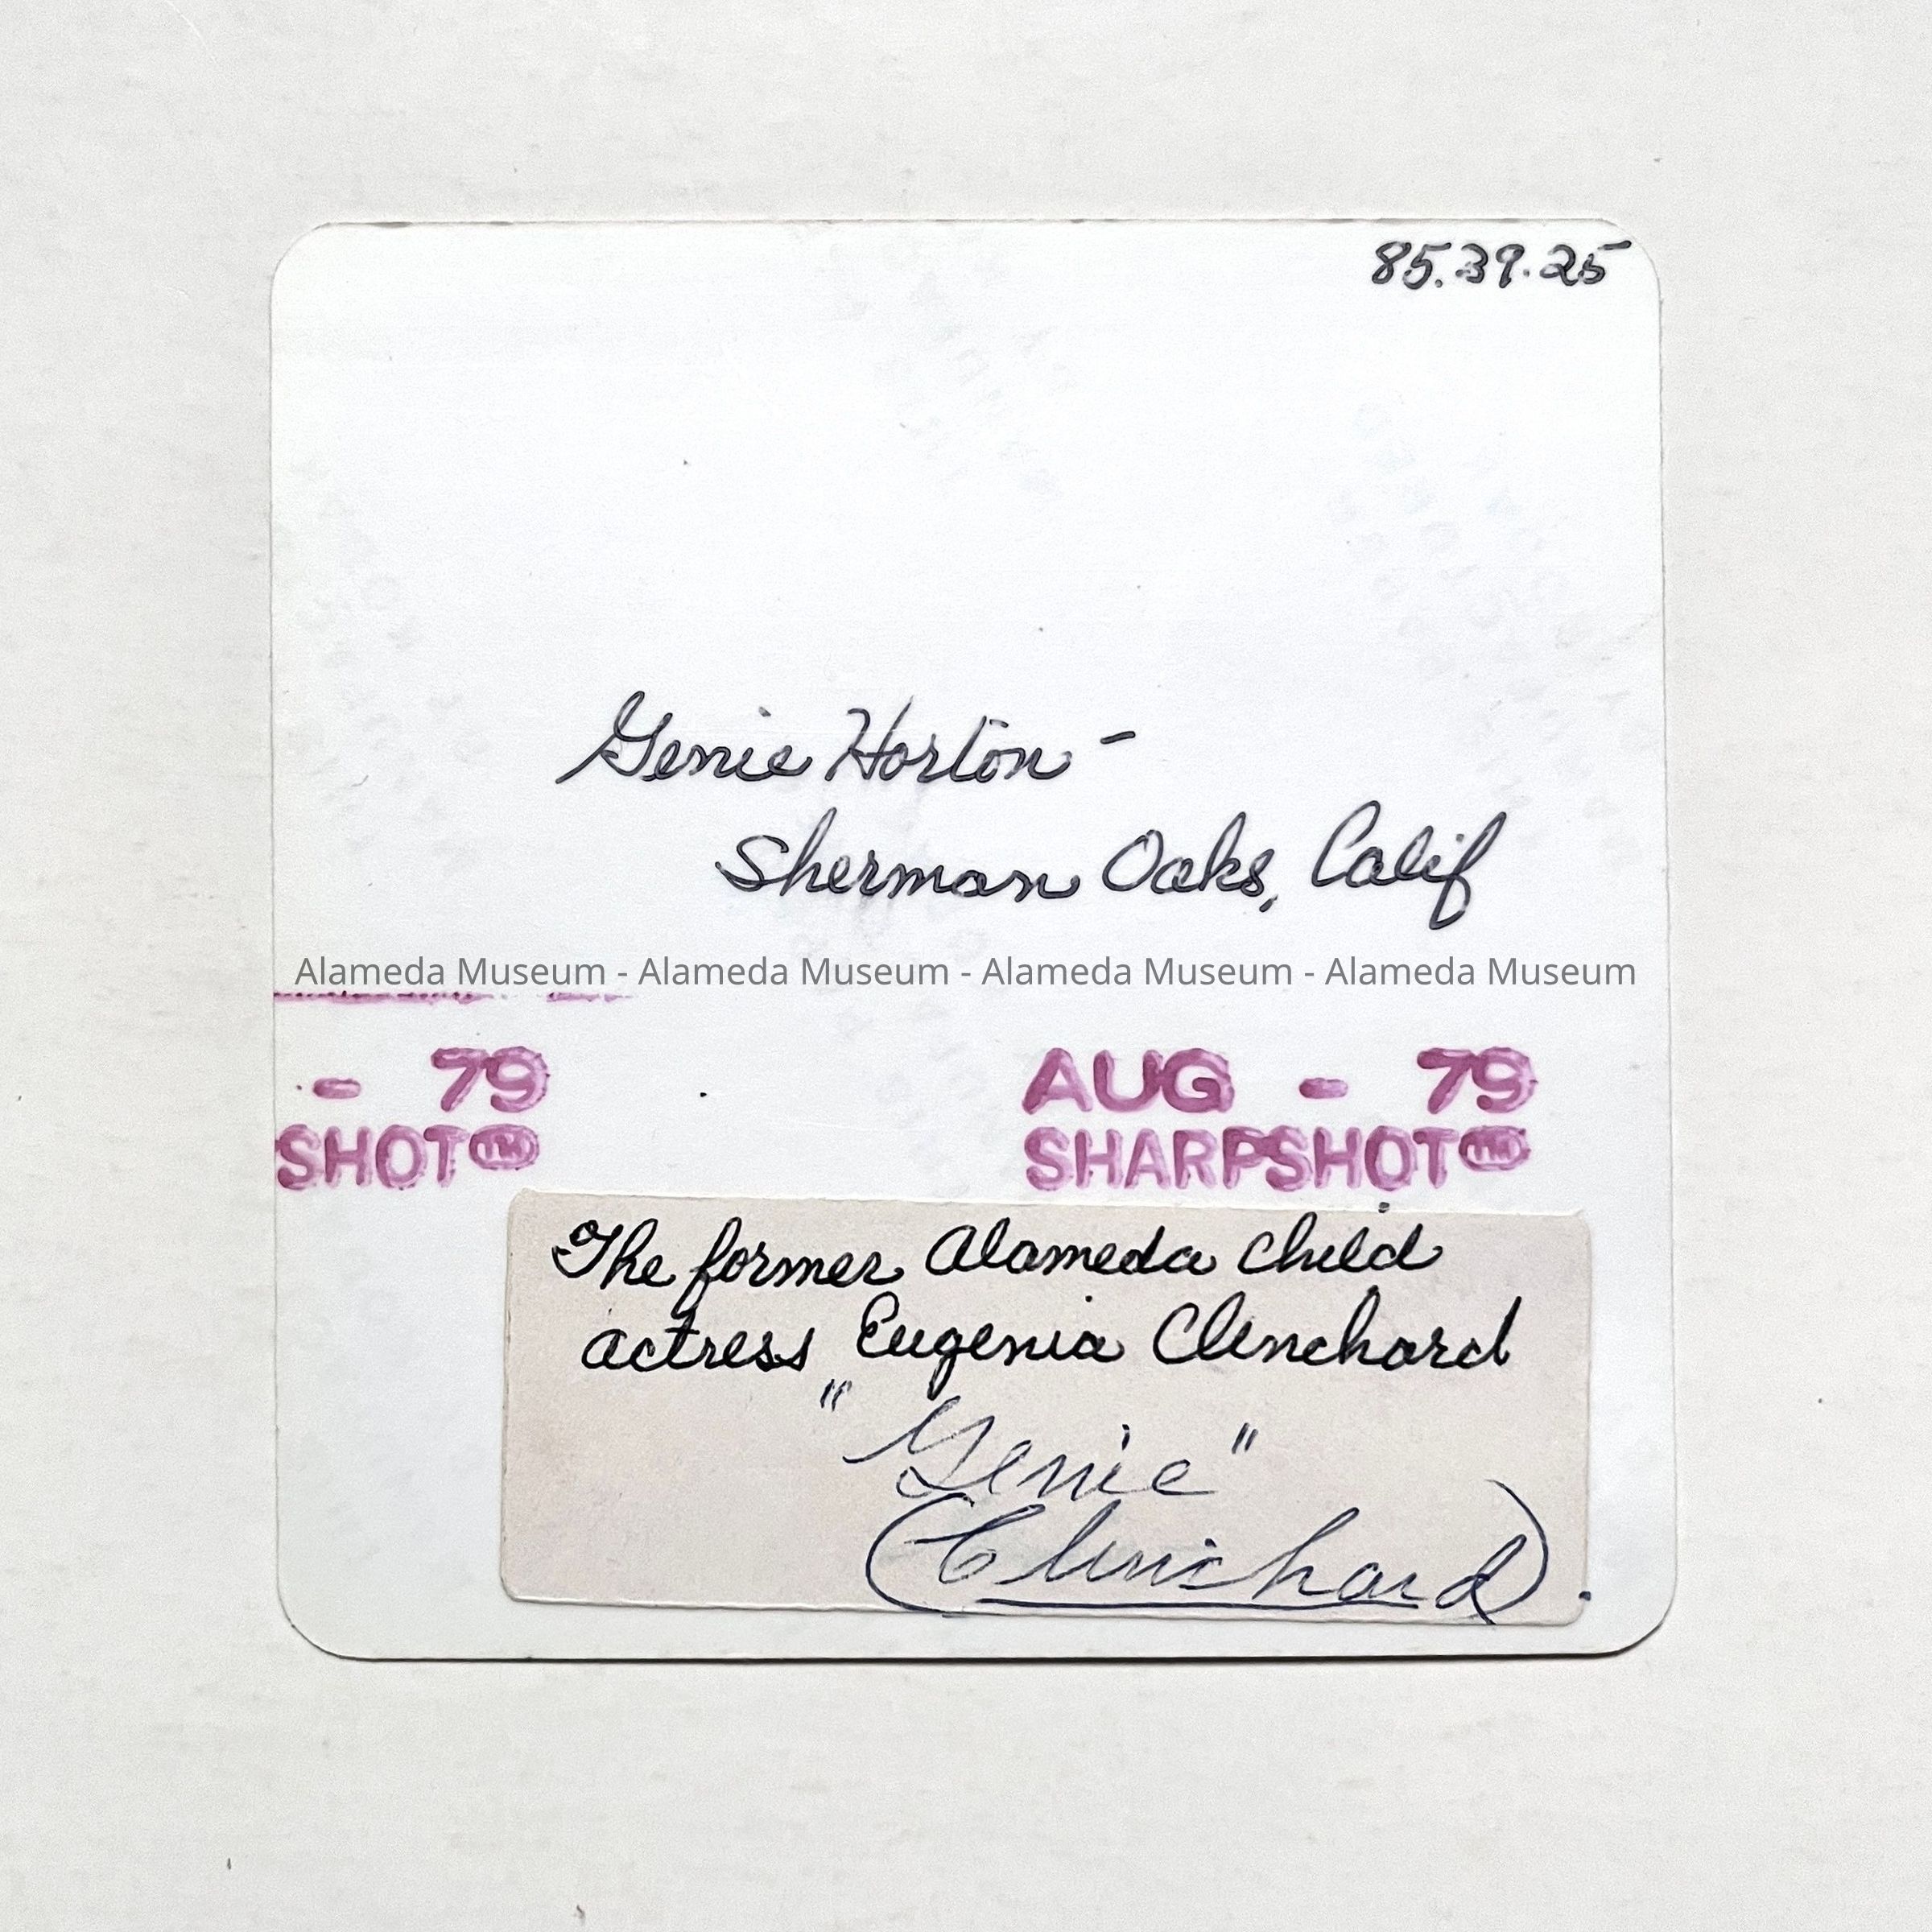 85.39.25
Genie Horton -
Sherman Oaks, Calif
Alameda Museum - Alameda Museum - Alameda Museum - Alameda Museum
- 79 AUG - 79
SHOT™ SHARPSHOT™
The former Alameda child
actress Eugenia Clinchard
"Genie"
(Clinchard).